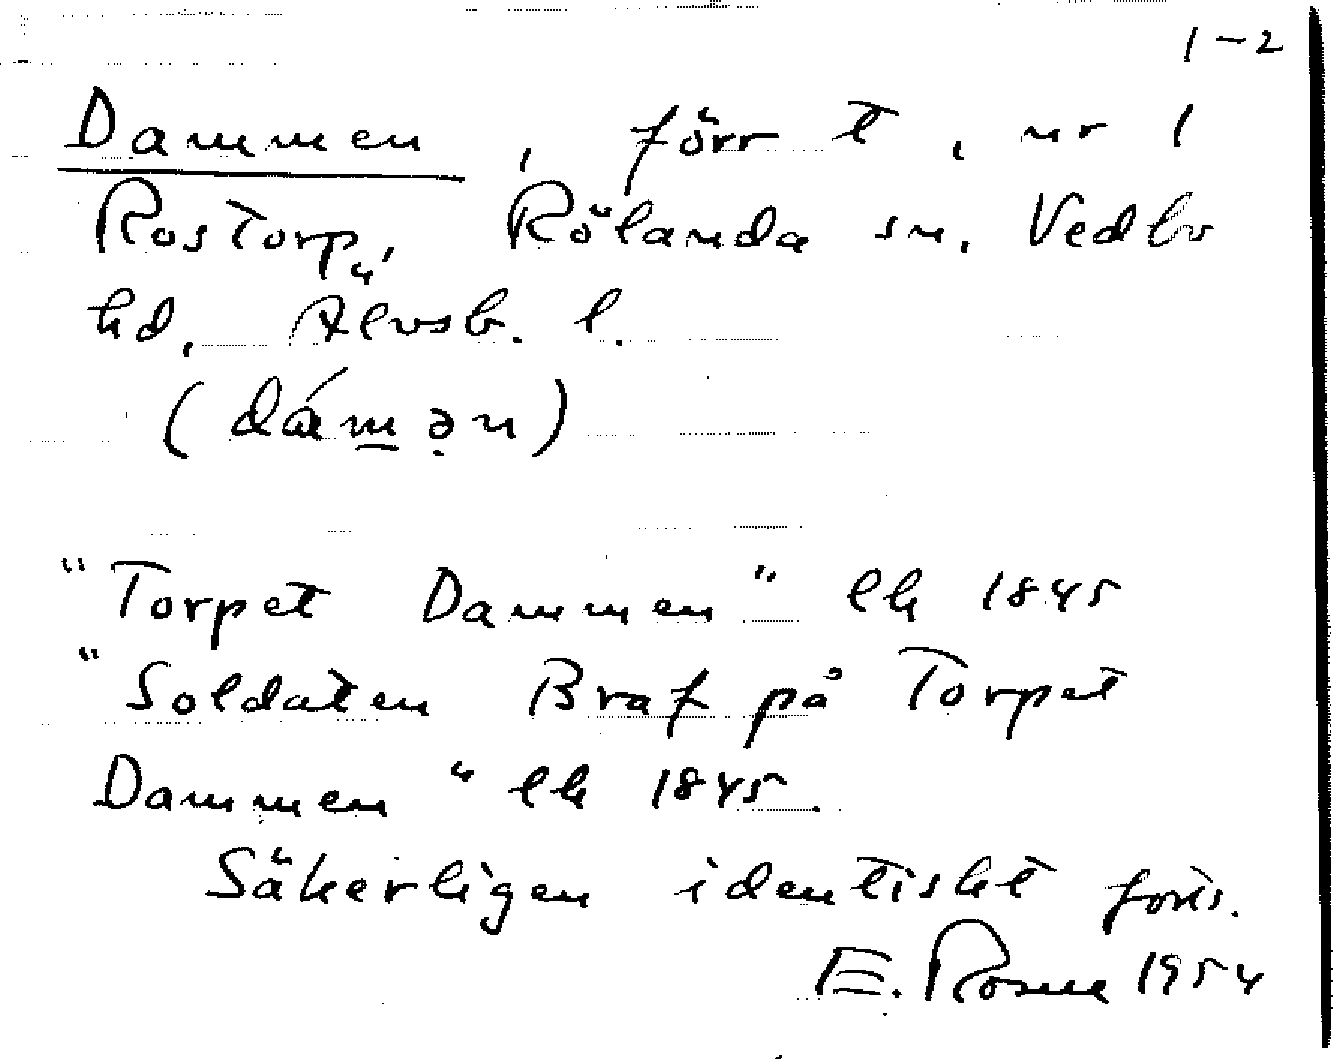 1-2
Dammen, förr t, nr 1
Rostorp, Rölanda sn, Vedbo
hd, Älvsb. l.
(dám̲ə̣n)
"Torpet Dammen" lh 1845
"Soldaten Braf på Torpet
Dammen" lh 1845.
Säkerligen identiskt forts.
E. Rosne 1954